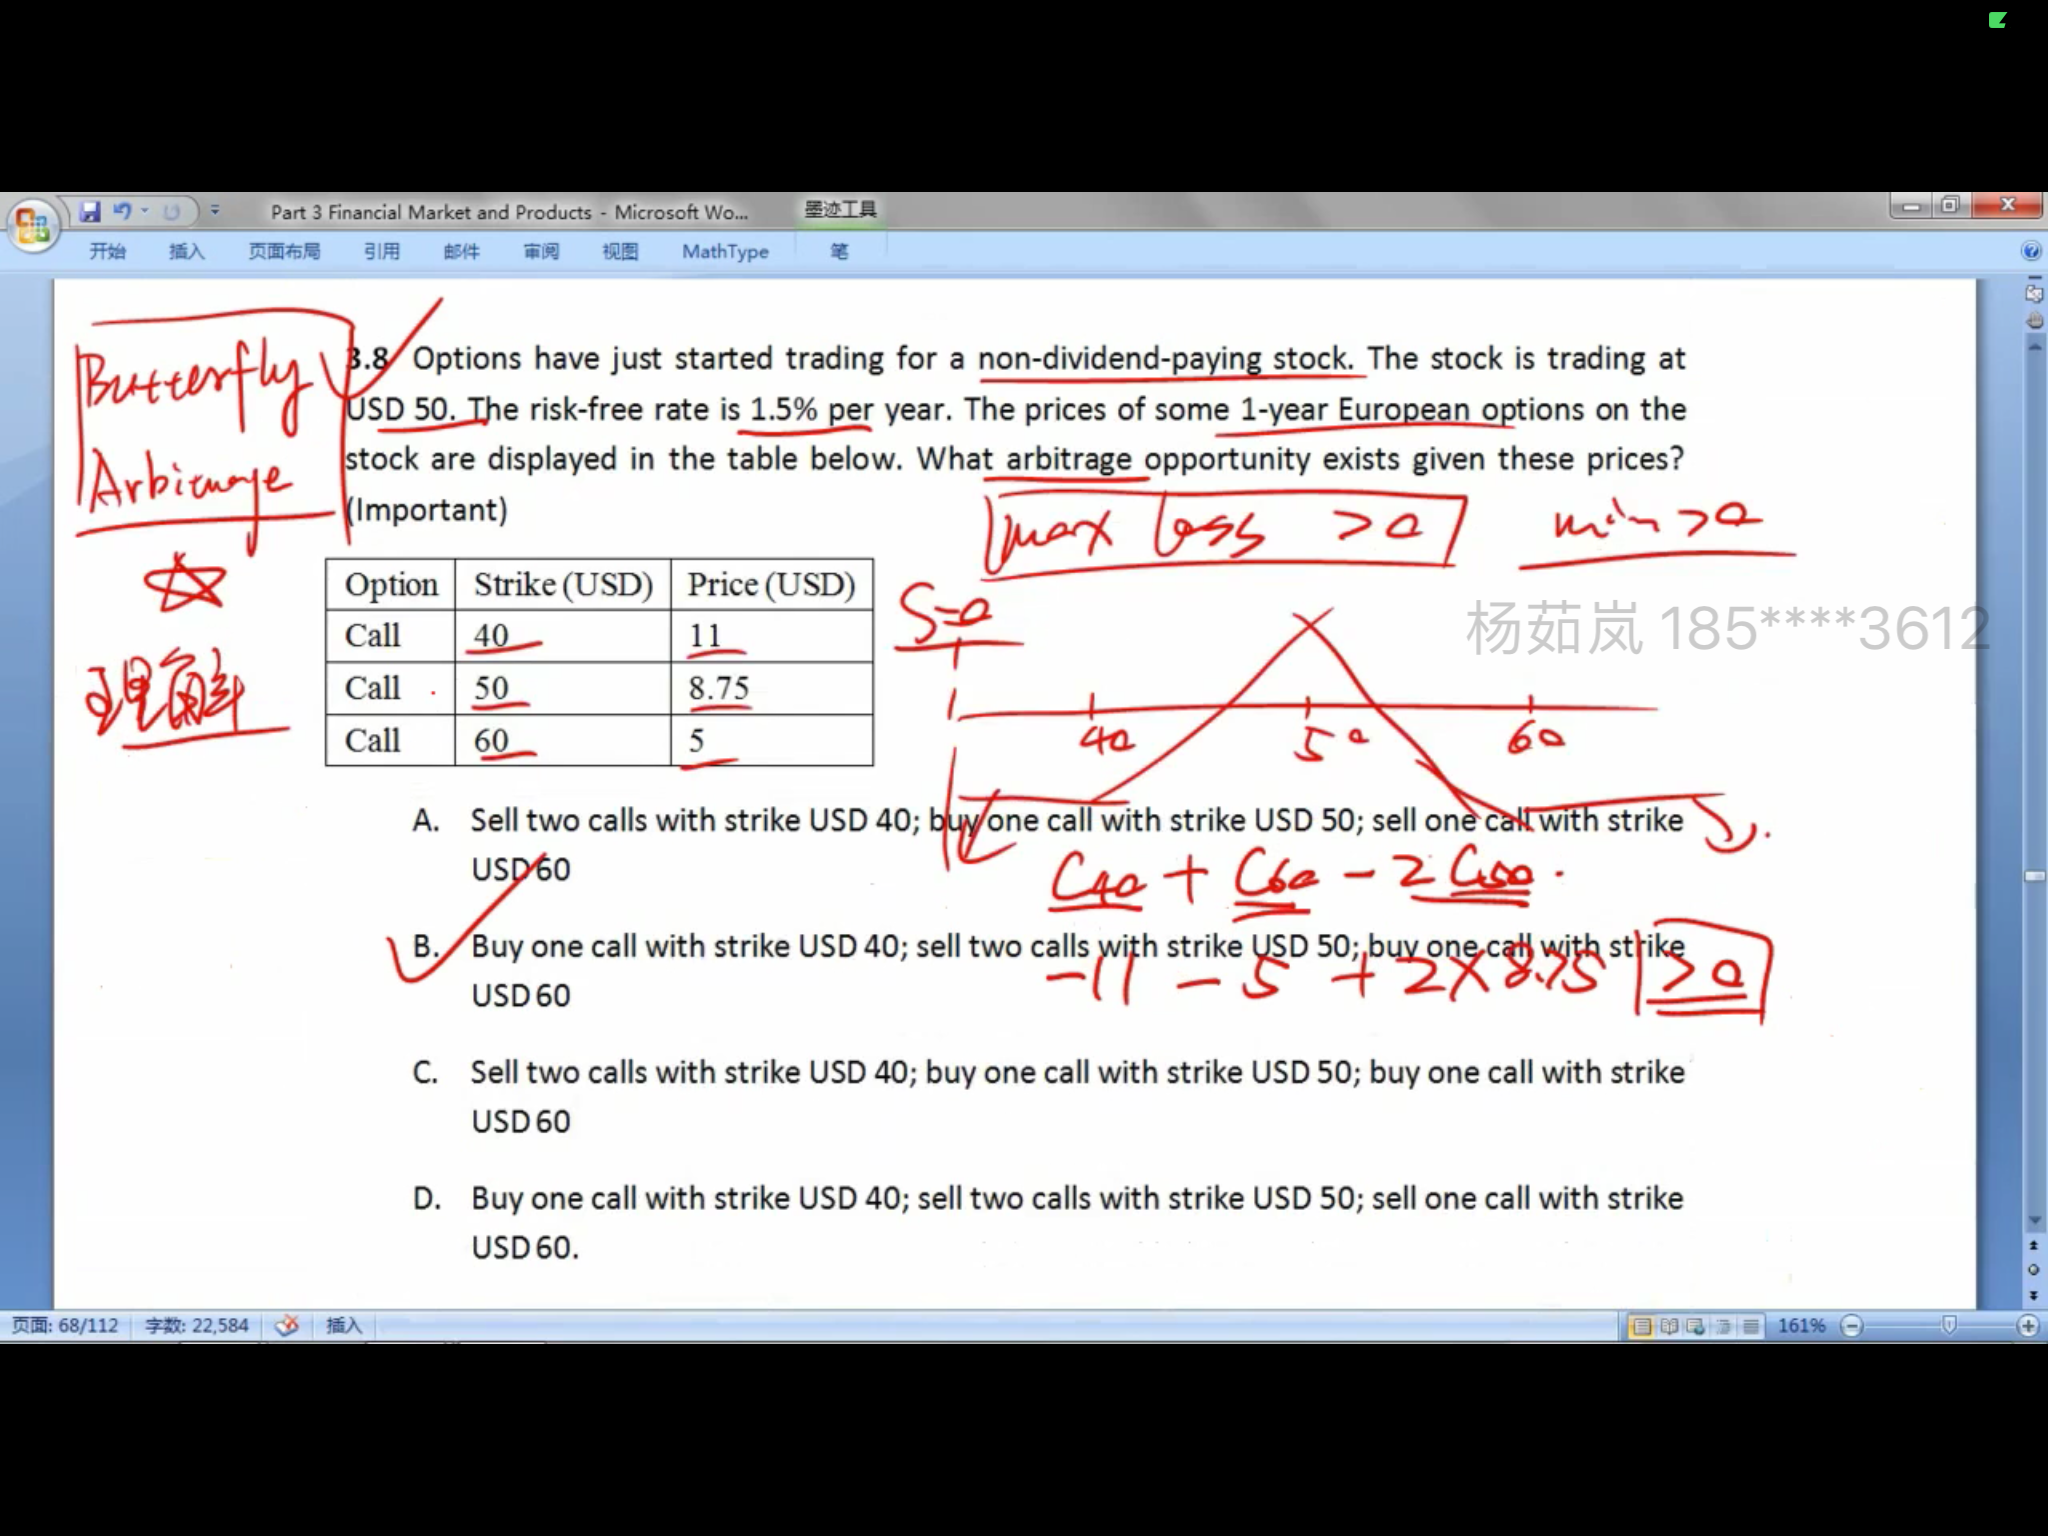 Part 3 Financial Market and Products - Microsoft Wo...
墨迹工具
开始 插入 页面布局 引用 邮件 审阅 视图 MathType 笔
Butterfly
Arbitrage
理解
3.8 Options have just started trading for a non-dividend-paying stock. The stock is trading at
USD 50. The risk-free rate is 1.5% per year. The prices of some 1-year European options on the
stock are displayed in the table below. What arbitrage opportunity exists given these prices?
(Important)
max loss >0
min >0
Option Strike (USD) Price (USD)
Call 40 11
Call 50 8.75
Call 60 5
S=0
40 50 60
杨茹岚 185****3612
A. Sell two calls with strike USD 40; buy one call with strike USD 50; sell one call with strike
USD 60
C40 + C60 - 2C50
B. Buy one call with strike USD 40; sell two calls with strike USD 50; buy one call with strike
USD 60
-11 - 5 + 2×8.75 >0
C. Sell two calls with strike USD 40; buy one call with strike USD 50; buy one call with strike
USD 60
D. Buy one call with strike USD 40; sell two calls with strike USD 50; sell one call with strike
USD 60.
页面: 68/112 字数: 22,584 插入 161%